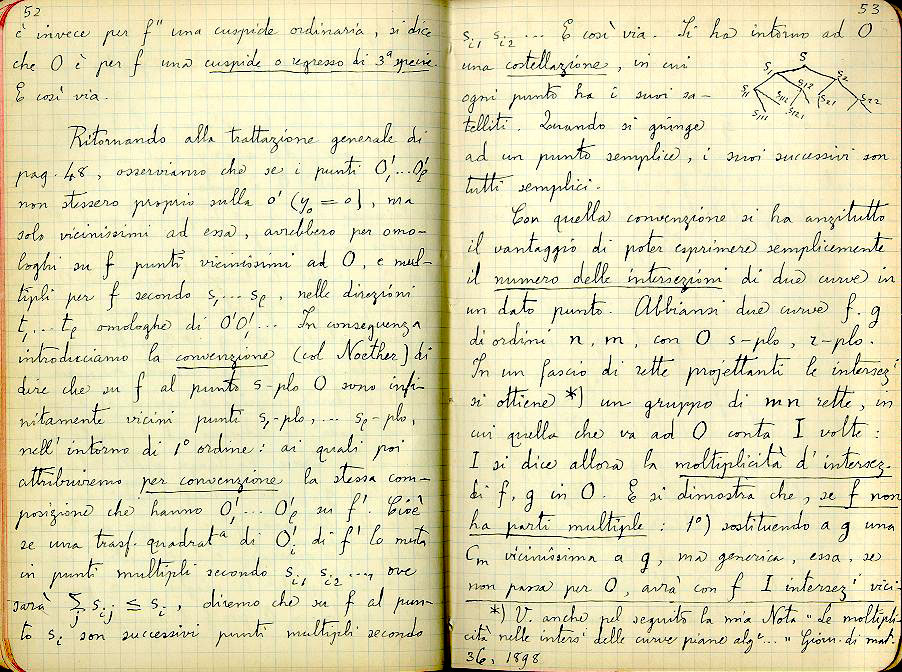 52
è invece per f" una cuspide ordinaria, si dice
che O è per f una cuspide o regresso di 3ª specie.
E così via.
Ritornando alla trattazione generale di
pag. 48, osserviamo che se i punti O'₁...O'ₑ
non stessero proprio sulla o' (y₀ = 0), ma
solo vicinissimi ad essa, avrebbero per omo-
loghi su f punti vicinissimi ad O, e mul-
tipli per f secondo s₁...sₑ, nelle direzioni
t₁...tₑ omologhe di O'O'₁... In conseguenza
introduciamo la convenzione (col Noether) di
dire che su f al punto s-plo O sono infi-
nitamente vicini punti s₁-plo,... sₑ-plo,
nell'intorno di 1° ordine: ai quali poi
attribuiremo per convenzione la stessa com-
posizione che hanno O'₁...O'ₑ su f'. Cioè
se una trasf. quadratᵃ di O'ᵢ di f' lo muta
in punti multipli secondo sᵢ₁ sᵢ₂ ..., ove
sarà ∑ⱼ sᵢⱼ ≤ sᵢ, diremo che su f al pun-
to sᵢ son successivi punti multipli secondo
53
sᵢ₁ sᵢ₂ ... E così via. Si ha intorno ad O
una costellazione, in cui
ogni punto ha i suoi sa-
telliti. Quando si giunge
ad un punto semplice, i suoi successivi son
tutti semplici.
s
s₁ s₂
s₁₁ s₁₂ s₂₁ s₂₂
s₁₁₁ s₁₁₂ s₁₂₁
Con quella convenzione si ha anzitutto
il vantaggio di poter esprimere semplicemente
il numero delle intersezioni di due curve in
un dato punto. Abbiansi due curve f, g
di ordini n, m, con O s-plo, r-plo.
In un fascio di rette projettanti le intersezⁱ
si ottiene *) un gruppo di mn rette, in
cui quella che va ad O conta I volte:
I si dice allora la moltiplicità d'intersez.
di f, g in O. E si dimostra che, se f non
ha parti multiple: 1°) sostituendo a g una
Cₘ vicinissima a g, ma generica, essa, se
non passa per O, avrà con f I intersezⁱ vici-
*) V. anche pel seguito la mia Nota "Le moltipli-
cità nelle intersⁱ delle curve piane algᵉ..." Giorn. di mat.
36, 1898